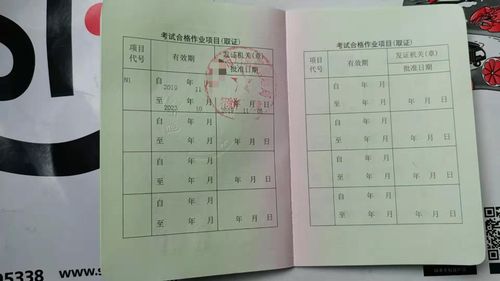 考试合格作业项目(取证)
项目代号
有效期
发证机关(章)
批准日期
N1
自 2019 年 11 月
至 2023 年 10 月
年 月 日
自 年 月
至 年 月
年 月 日
自 年 月
至 年 月
年 月 日
自 年 月
至 年 月
年 月 日
考试合格作业项目(取证)
项目代号
有效期
发证机关(章)
批准日期
自 年 月
至 年 月
年 月 日
自 年 月
至 年 月
年 月 日
自 年 月
至 年 月
年 月 日
自 年 月
至 年 月
年 月 日
05338
www.s